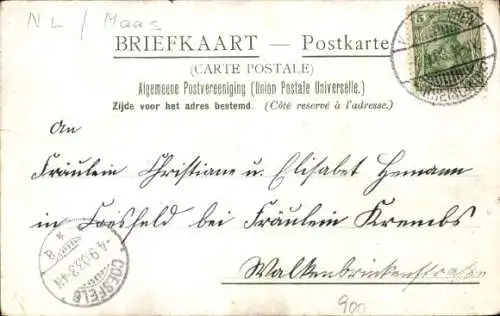 NL / Maas
BRIEFKAART — Postkarte
(CARTE POSTALE)
Algemeene Postvereeniging (Union Postale Universelle.)
Zijde voor het adres bestemd. (Côté reservé à l'adresse.)
5
An
Fräulein Christiane u. Elisabet Hemann
in Coesfeld bei Fräulein Krembs
Walkenbrückenstraße
COESFELD
4.9.03.3-4N
900